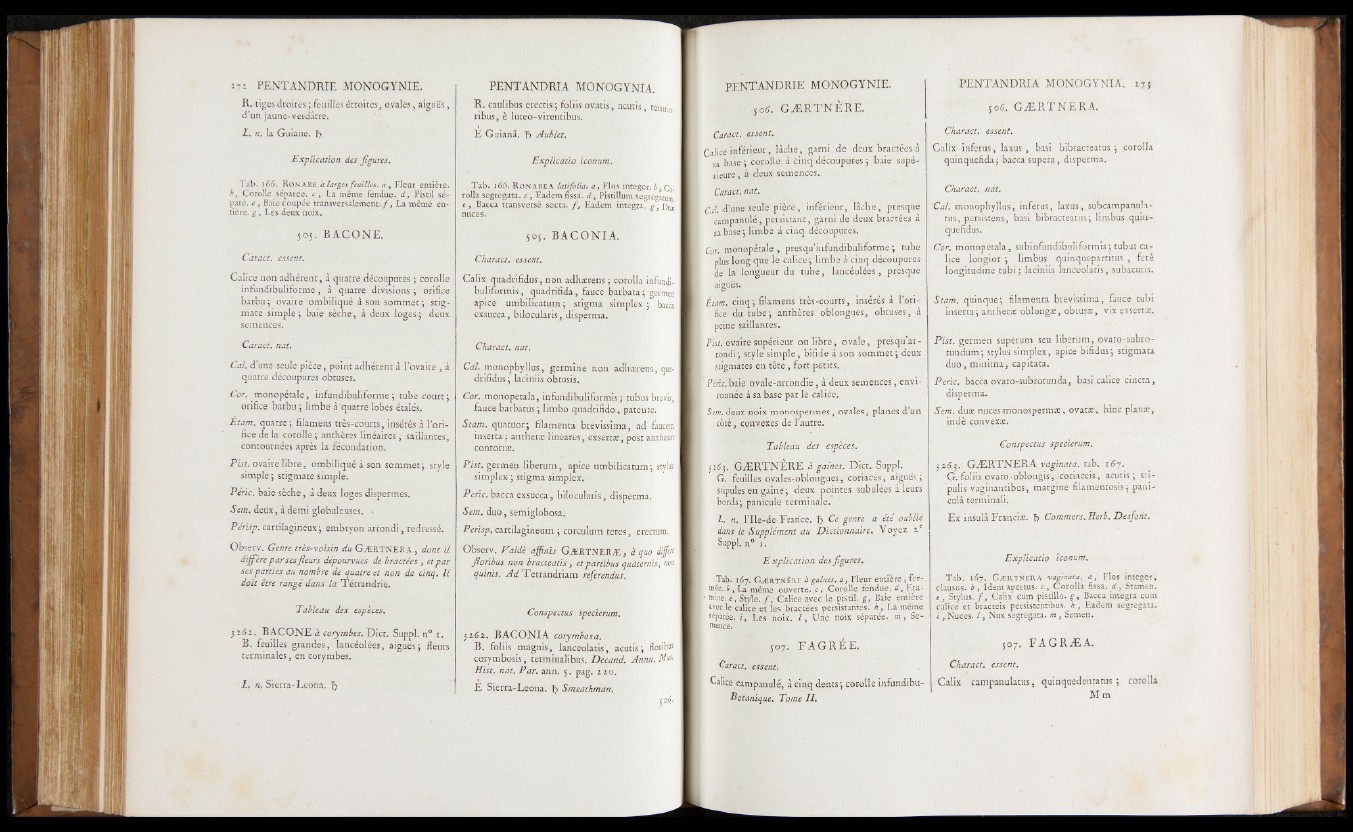 272 PENTANDRIE MONOGYNIE.
R. tiges droites ; feuilles étroites, ovales, aiguës,
d'un jaune-verdâtre.
L. n. la Guiane. ђ
Explication des figures.
Tab. 166. RONABE à larges feuilles. a, Fleur entière.
b, Corolle séparée. c, La même fendue. d, Pistil sé-
paré. e, Baie coupée transversalement. f, La même en-
tière. g, Les deux noix.
505. BACONE.
Caract. essent.
Calice non adhérent, à quatre découpures ; corolle
infundibuliforme, à quatre divisions ; orifice
barbu ; ovaire ombiliqué à son sommet ; stig-
mate simple ; baie sèche, à deux loges ; deux
semences.
Caract. nat.
Cal. d'une seule pièce, point adhérent à l'ovaire, à
quatre découpures obtuses.
Cor. monopétale, infundibuliforme ; tube court ;
orifice barbu ; limbe à quatre lobes étalés.
Étam. quatre ; filamens très-courts, insérés à l'ori-
fice de la corolle ; anthères linéaires, saillantes,
contournées après la fécondation.
Pist. ovaire libre, ombiliqué à son sommet ; style
simple ; stigmate simple.
Péric. baie sèche, à deux loges dispermes.
Sem. deux, à demi globuleuses.
Périsp. cartilagineux ; embryon arrondi, redressé.
Observ. Genre très-voisin du GÆRTNERA, dont il
diffère par ses fleurs dépourvues de bractées, et par
ses parties au nombre de quatre et non de cinq. Il
doit être rangé dans la Tétrandrie.
Tableau des espèces.
3262. BACONE à corymbes. Dict. Suppl. n° 1.
B. feuilles grandes, lancéolées, aiguës ; fleurs
terminales, en corymbes.
L. n. Sierra-Leona. ђ
PENTANDRIA MONOGYNIA.
R. caulibus erectis ; foliis ovatis, acutis, tenuio-
ribus, è luteo-virentibus.
È Guianâ. ђ Aublet.
Explicatio iconum.
Tab. 166. RONABEA latifolia. a, Flos integer. b, Co-
rolla segregata. c, Eadem fissa. d, Pistillum segregatum.
e, Bacca transversè secta. f, Eadem integra. g, Duæ
nuces.
505. BACONIA.
Charact. essent.
Calix quadrifidus, non adhærens ; corolla infundi-
buliformis, quadrifida, fauce barbata ; germen
apice umbilicatum ; stigma simplex ; bacca
exsucca, bilocularis, disperma.
Charact. nat.
Cal. monophyllus, germine non adhærens, qua-
drifidus ; laciniis obtusis.
Cor. monopetala, infundibuliformis ; tubus brevis,
fauce barbatus ; limbo quadrifido, patente.
Stam. quatuor ; filamenta brevissima, ad faucem
inserta ; antheræ lineares, exsertæ, post anthesin
contortæ.
Pist. germen liberum, apice umbilicatum ; stylus
simplex ; stigma simplex.
Peric. bacca exsucca, bilocularis, disperma.
Sem. duo, semiglobosa.
Perisp. cartilagineum ; corculum teres, erectum.
Observ. Valdè affinis GÆRTNERÆ, à quo differt
floribus non bracteatis, et partibus quaternis, non
quinis. Ad Tetrandriam referendus.
Conspectus specierum.
3262. BACONIA corymbosa.
B. foliis magnis, lanceolatis, acutis ; floribus
corymbosis, terminalibus. Decand. Annu. Mus.
Hist. nat. Par. ann. 5. pag. 220.
È Sierra-Leona. ђ Smeathman.
506.
PENTANDRIE MONOGYNIE.
506. GÆRTNÈRE.
Caract. essent.
Calice inférieur, lâche, garni de deux bractées à
sa base ; corolle à cinq découpures ; baie supé-
rieure, à deux semences.
Caract. nat.
Cal. d'une seule pièce, inférieur, lâche, presque
campanulé, persistant, garni de deux bractées à
sa base ; limbe à cinq découpures.
Cor. monopétale, presqu'infundibuliforme ; tube
plus long que le calice ; limbe à cinq découpures
de la longueur du tube, lancéolées, presque
aiguës.
Étam. cinq ; filamens très-courts, insérés à l'ori-
fice du tube ; anthères oblongues, obtuses, à
peine saillantes.
Pist. ovaire supérieur ou libre, ovale, presqu'ar-
rondi ; style simple, bifide à son sommet ; deux
stigmates en tête, fort petits.
Péric. baie ovale-arrondie, à deux semences, envi-
ronnée à sa base par le calice.
Sem. deux noix monospermes, ovales, planes d'un
côté, convexes de l'autre.
Tableau des espèces.
3263. GÆRTNÈRE à gaines. Dict. Suppl.
G. feuilles ovales-oblongues, coriaces, aiguës ;
stipules en gaîne ; deux pointes subulées à leurs
bords ; panicule terminale.
L. n. l'Ile-de-France. ђ Ce genre a été oublié
dans le Supplément au Dictionnaire. Voyez 2e
Suppl. n° 1.
Explication des figures.
Tab. 167. GÆRTNÈRE à gaînes. a, Fleur entière, fer-
mée. b, La même ouverte. c, Corolle fendue. d, Éta-
mine. e, Style. f, Calice avec le pistil. g, Baie entière
avec le calice et les bractées persistantes. h, La même
séparée. i, Les noix. l, Une noix séparée. m, Se-
mence.
507. FAGRÉE.
Caract. essent.
Calice campanulé, à cinq dents ; corolle infundibu-
Botanique. Tome II.
PENTANDRIA MONOGYNIA. 273
506. GÆRTNERA.
Charact. essent.
Calix inferus, laxus, basi bibracteatus ; corolla
quinquefida ; bacca supera, disperma.
Charact. nat.
Cal. monophyllus, inferus, laxus, subcampanula-
tus, persistens, basi bibracteatus ; limbus quin-
quefidus.
Cor. monopetala, subinfundibuliformis ; tubus ca-
lice longior ; limbus quinquepartitus, ferè
longitudine tubi ; laciniis lanceolatis, subacutis.
Stam. quinque ; filamenta brevissima, fauce tubi
inserta ; antheræ oblongæ, obtusæ, vix exsertæ.
Pist. germen superum seu liberum, ovato-subro-
tundum ; stylus simplex, apice bifidus ; stigmata
duo, minima, capitata.
Peric. bacca ovato-subrotunda, basi calice cincta,
disperma.
Sem. duæ nuces monospermæ, ovatæ, hinc planæ,
indè convexæ.
Conspectus specierum.
3263. GÆRTNERA vaginata. tab. 167.
G. foliis ovato-oblongis, coriaceis, acutis ; sti-
pulis vaginantibus, margine filamentosis ; pani-
culâ terminali.
Ex insulâ Franciæ. ђ Commers. Herb. Desfont.
Explicatio iconum.
Tab. 167. GÆRTNERA vaginata. a, Flos integer,
clausus. b, Idem apertus. c, Corolla fissa. d, Stamen.
e, Stylus. f, Calix cum pistillo. g, Bacca integra cum
calice et bracteis persistentibus. h, Eadem segregata.
i, Nuces. l, Nux segregata. m, Semen.
507. FAGRÆA.
Charact. essent.
Calix campanulatus, quinquedentatus ; corolla
M m